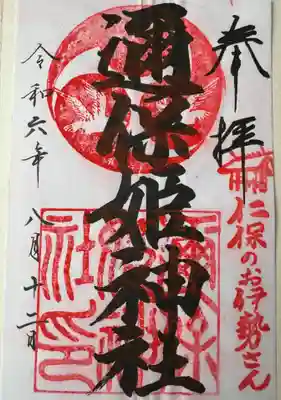 奉拝
仁保のお伊勢さん
邇保姫神社
令和六年 八月十二日